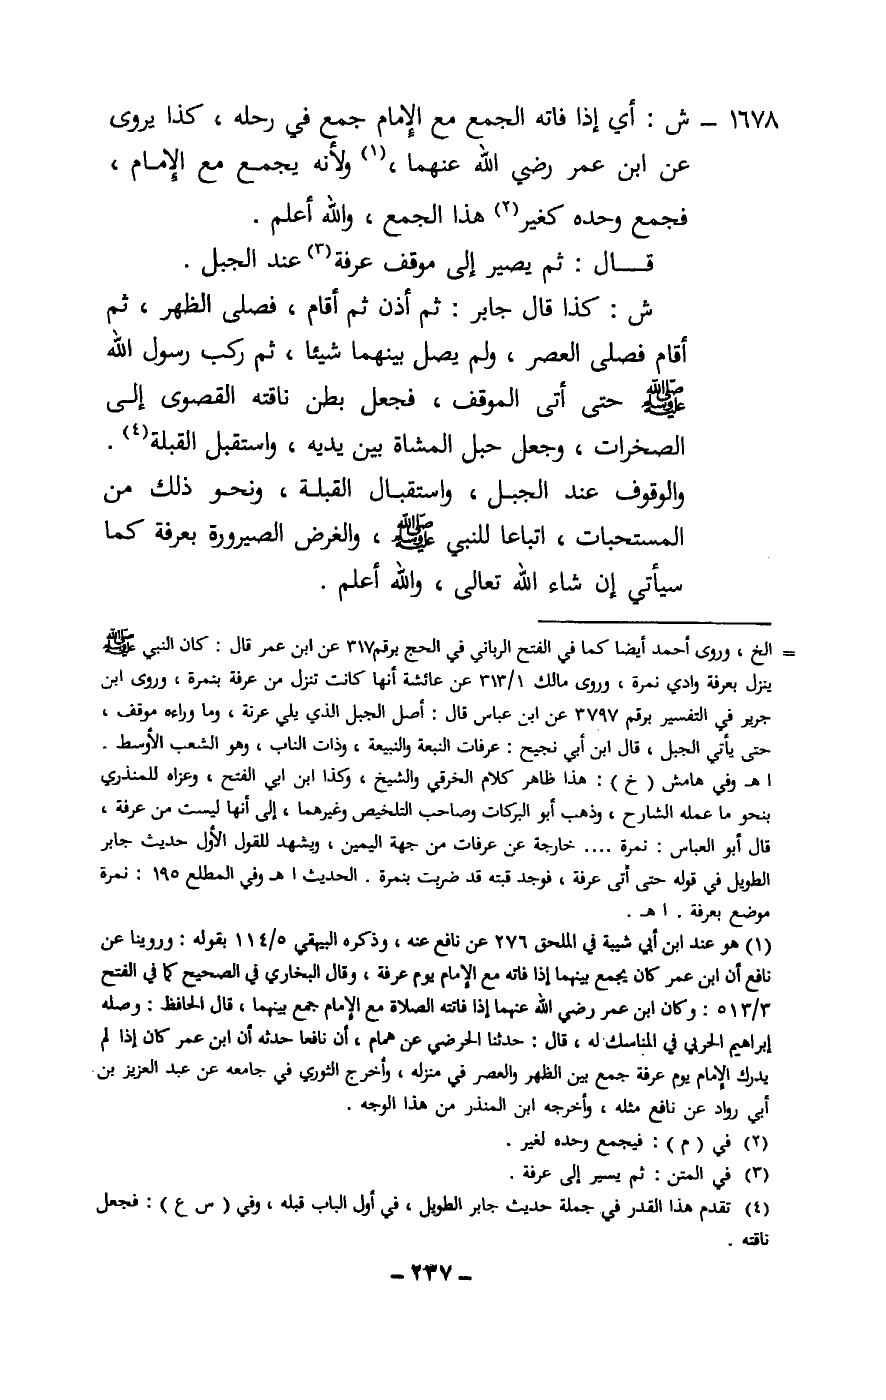 ١٦٧٨ ـ ش : أي إذا فاته الجمع مع الإمام جمع في رحله ، كذا يروى
عن ابن عمر رضي الله عنهما ،(١) ولأنه يجمـع مع الإمـام ،
فجمع وحده كغير(٢) هذا الجمع ، والله أعلم .
قــــال : ثم يصير إلى موقف عرفة(٣) عند الجبل .
ش : كذا قال جابر : ثم أذن ثم أقام ، فصلى الظهر ، ثم
أقام فصلى العصر ، ولم يصل بينهما شيئا ، ثم ركب رسول الله
ﷺ حتى أتى الموقف ، فجعل بطن ناقته القصوى إلـى
الصخرات ، وجعل حبل المشاة بين يديه ، واستقبل القبلة(٤) .
والوقوف عند الجبـل ، واستقبـال القبلـة ، ونحـو ذلك من
المستحبات ، اتباعا للنبي ﷺ ، والغرض الصيرورة بعرفة كما
سيأتي إن شاء الله تعالى ، والله أعلم .
= الخ ، وروى أحمد أيضا كما في الفتح الرباني في الحج برقم٣١٧ عن ابن عمر قال : كان النبي ﷺ
ينزل بعرفة وادي نمرة ، وروى مالك ٣١٣/١ عن عائشة أنها كانت تنزل من عرفة بنمرة ، وروى ابن
جرير في التفسير برقم ٣٧٩٧ عن ابن عباس قال : أصل الجبل الذي يلي عرنة ، وما وراءه موقف ،
حتى يأتي الجبل ، قال ابن أبي نجيح : عرفات النبعة والنبيعة ، وذات الناب ، وهو الشعب الأوسط .
ا هـ وفي هامش ( خ ) : هذا ظاهر كلام الخرقي والشيخ ، وكذا ابن ابي الفتح ، وعزاه للمنذري
بنحو ما عمله الشارح ، وذهب أبو البركات وصاحب التلخيص وغيرهما ، إلى أنها ليست من عرفة ،
قال أبو العباس : نمرة .... خارجة عن عرفات من جهة اليمين ، ويشهد للقول الأول حديث جابر
الطويل في قوله حتى أتى عرفة ، فوجد قبته قد ضربت بنمرة . الحديث ا هـ وفي المطلع ١٩٥ : نمرة
موضع بعرفة . ا هـ .
(١) هو عند ابن أبي شيبة في الملحق ٢٧٦ عن نافع عنه ، وذكره البيهقي ١١٤/٥ بقوله : وروينا عن
نافع أن ابن عمر كان يجمع بينهما إذا فاته مع الإمام يوم عرفة ، وقال البخاري في الصحيح كما في الفتح
٥١٣/٣ : وكان ابن عمر رضي الله عنهما إذا فاتته الصلاة مع الإمام جمع بينهما ، قال الحافظ : وصله
إبراهيم الحربي في المناسك له ، قال : حدثنا الحرضي عن همام ، أن نافعا حدثه أن ابن عمر كان إذا لم
يدرك الإمام يوم عرفة جمع بين الظهر والعصر في منزله ، وأخرج الثوري في جامعه عن عبد العزيز بن
أبي رواد عن نافع مثله ، وأخرجه ابن المنذر من هذا الوجه .
(٢) في ( م ) : فيجمع وحده لغير .
(٣) في المتن : ثم يسير إلى عرفة .
(٤) تقدم هذا القدر في جملة حديث جابر الطويل ، في أول الباب قبله ، وفي ( س ع ) : فجعل
ناقته .
ـ ٢٣٧ ـ